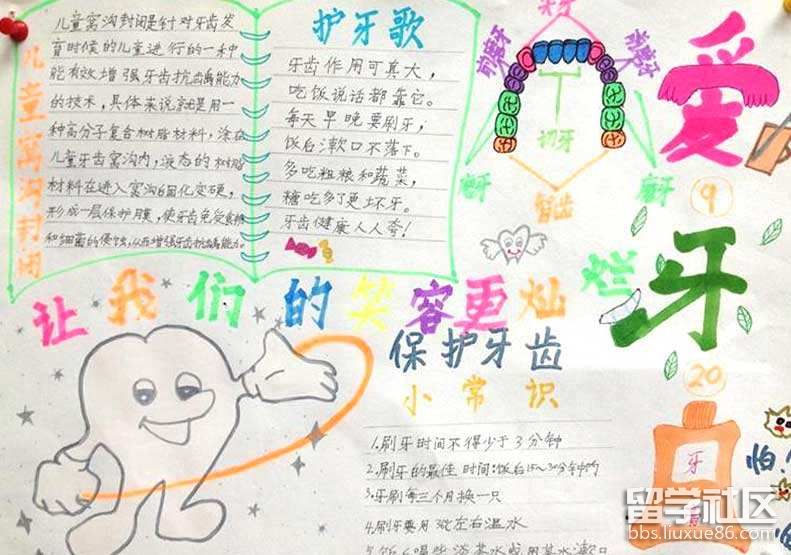 儿童窝沟封闭
儿童窝沟封闭是针对牙齿发
育时候的儿童进行的一种
能有效增强牙齿抗龋能力
的技术，具体来说就是用一
种高分子复合树脂材料，涂在
儿童牙齿窝沟内，液态的树脂
材料在进入窝沟后固化变硬，
形成一层保护膜，使牙齿免受食物
和细菌的侵蚀，从而增强牙齿抗龋能力。
护牙歌
牙齿作用可真大，
吃饭说话都靠它。
每天早晚要刷牙，
饭后漱口不落下。
多吃粗粮和蔬菜，
糖吃多了更坏牙。
牙齿健康人人夸！
尖牙
前磨牙
前磨牙
切牙
磨牙
磨牙
智齿
爱
9
牙
20
让我们的笑容更灿烂
保护牙齿
小常识
1.刷牙时间不得少于3分钟
2.刷牙的最佳时间：饭后15~30分钟内
3.牙刷每三个月换一只
4.刷牙要用37℃左右温水
牙
怕！
留学社区
bbs.liuxue86.com